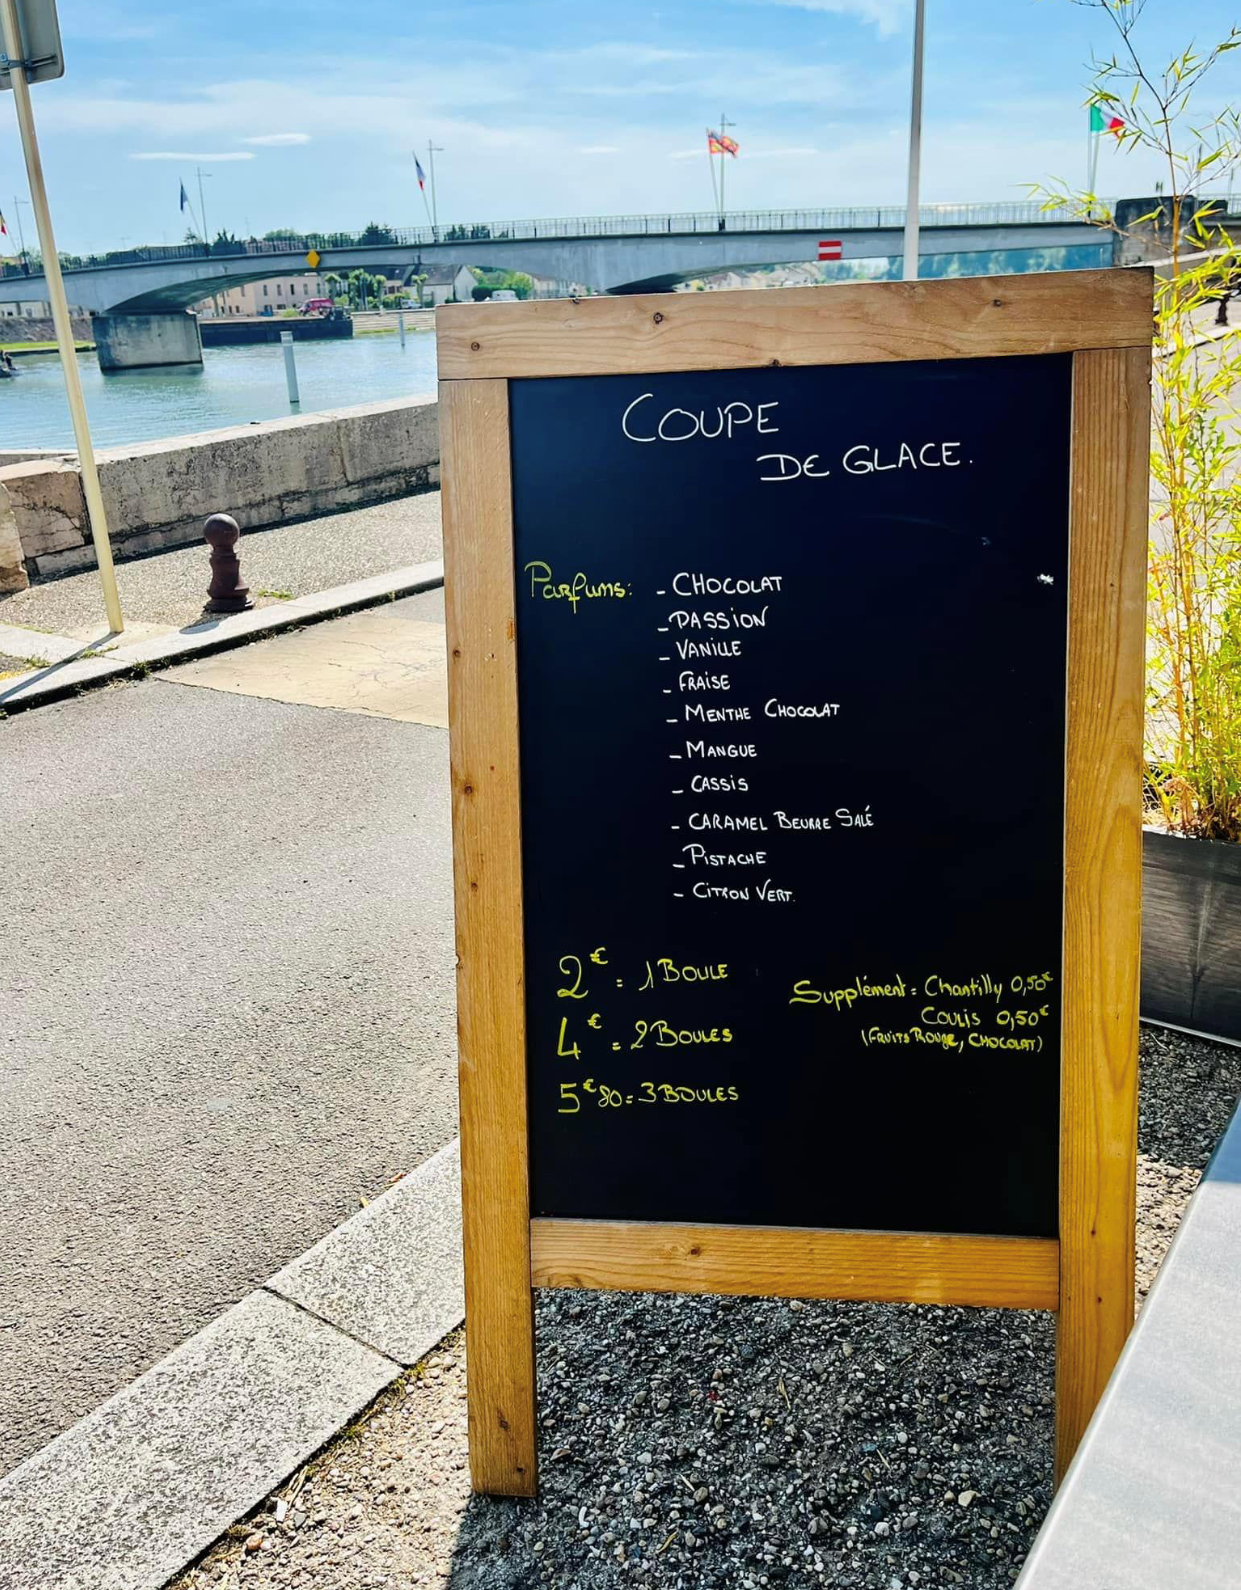 COUPE
DE GLACE.
Parfums: - CHOCOLAT
- PASSION
- VANILLE
- FRAISE
- MENTHE CHOCOLAT
- MANGUE
- CASSIS
- CARAMEL BEURRE SALÉ
- PISTACHE
- CITRON VERT.
2€ = 1 BOULE
4€ = 2 BOULES
5€80 = 3 BOULES
Supplément = Chantilly 0,50€
Coulis 0,50€
(FRUITS ROUGE, CHOCOLAT)